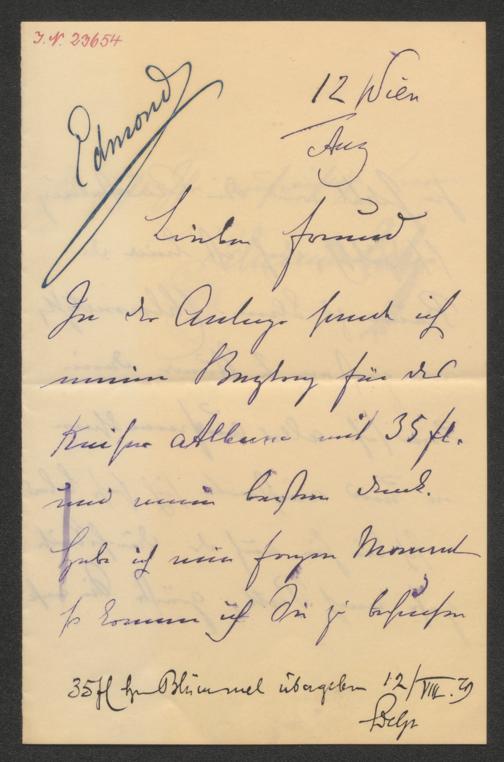 I. N. 23654
Edmond
12 Wien
Aug
Lieber Freund
In der Anlage sende ich
meinen Beytrag für das
Kaiser Album mit 35 fl.
und meinen besten Dank.
Habe ich einen freyen Moment
so komme ich Sie zu besuchen
35 fl Blümmel übergeben 12/VIII. 79